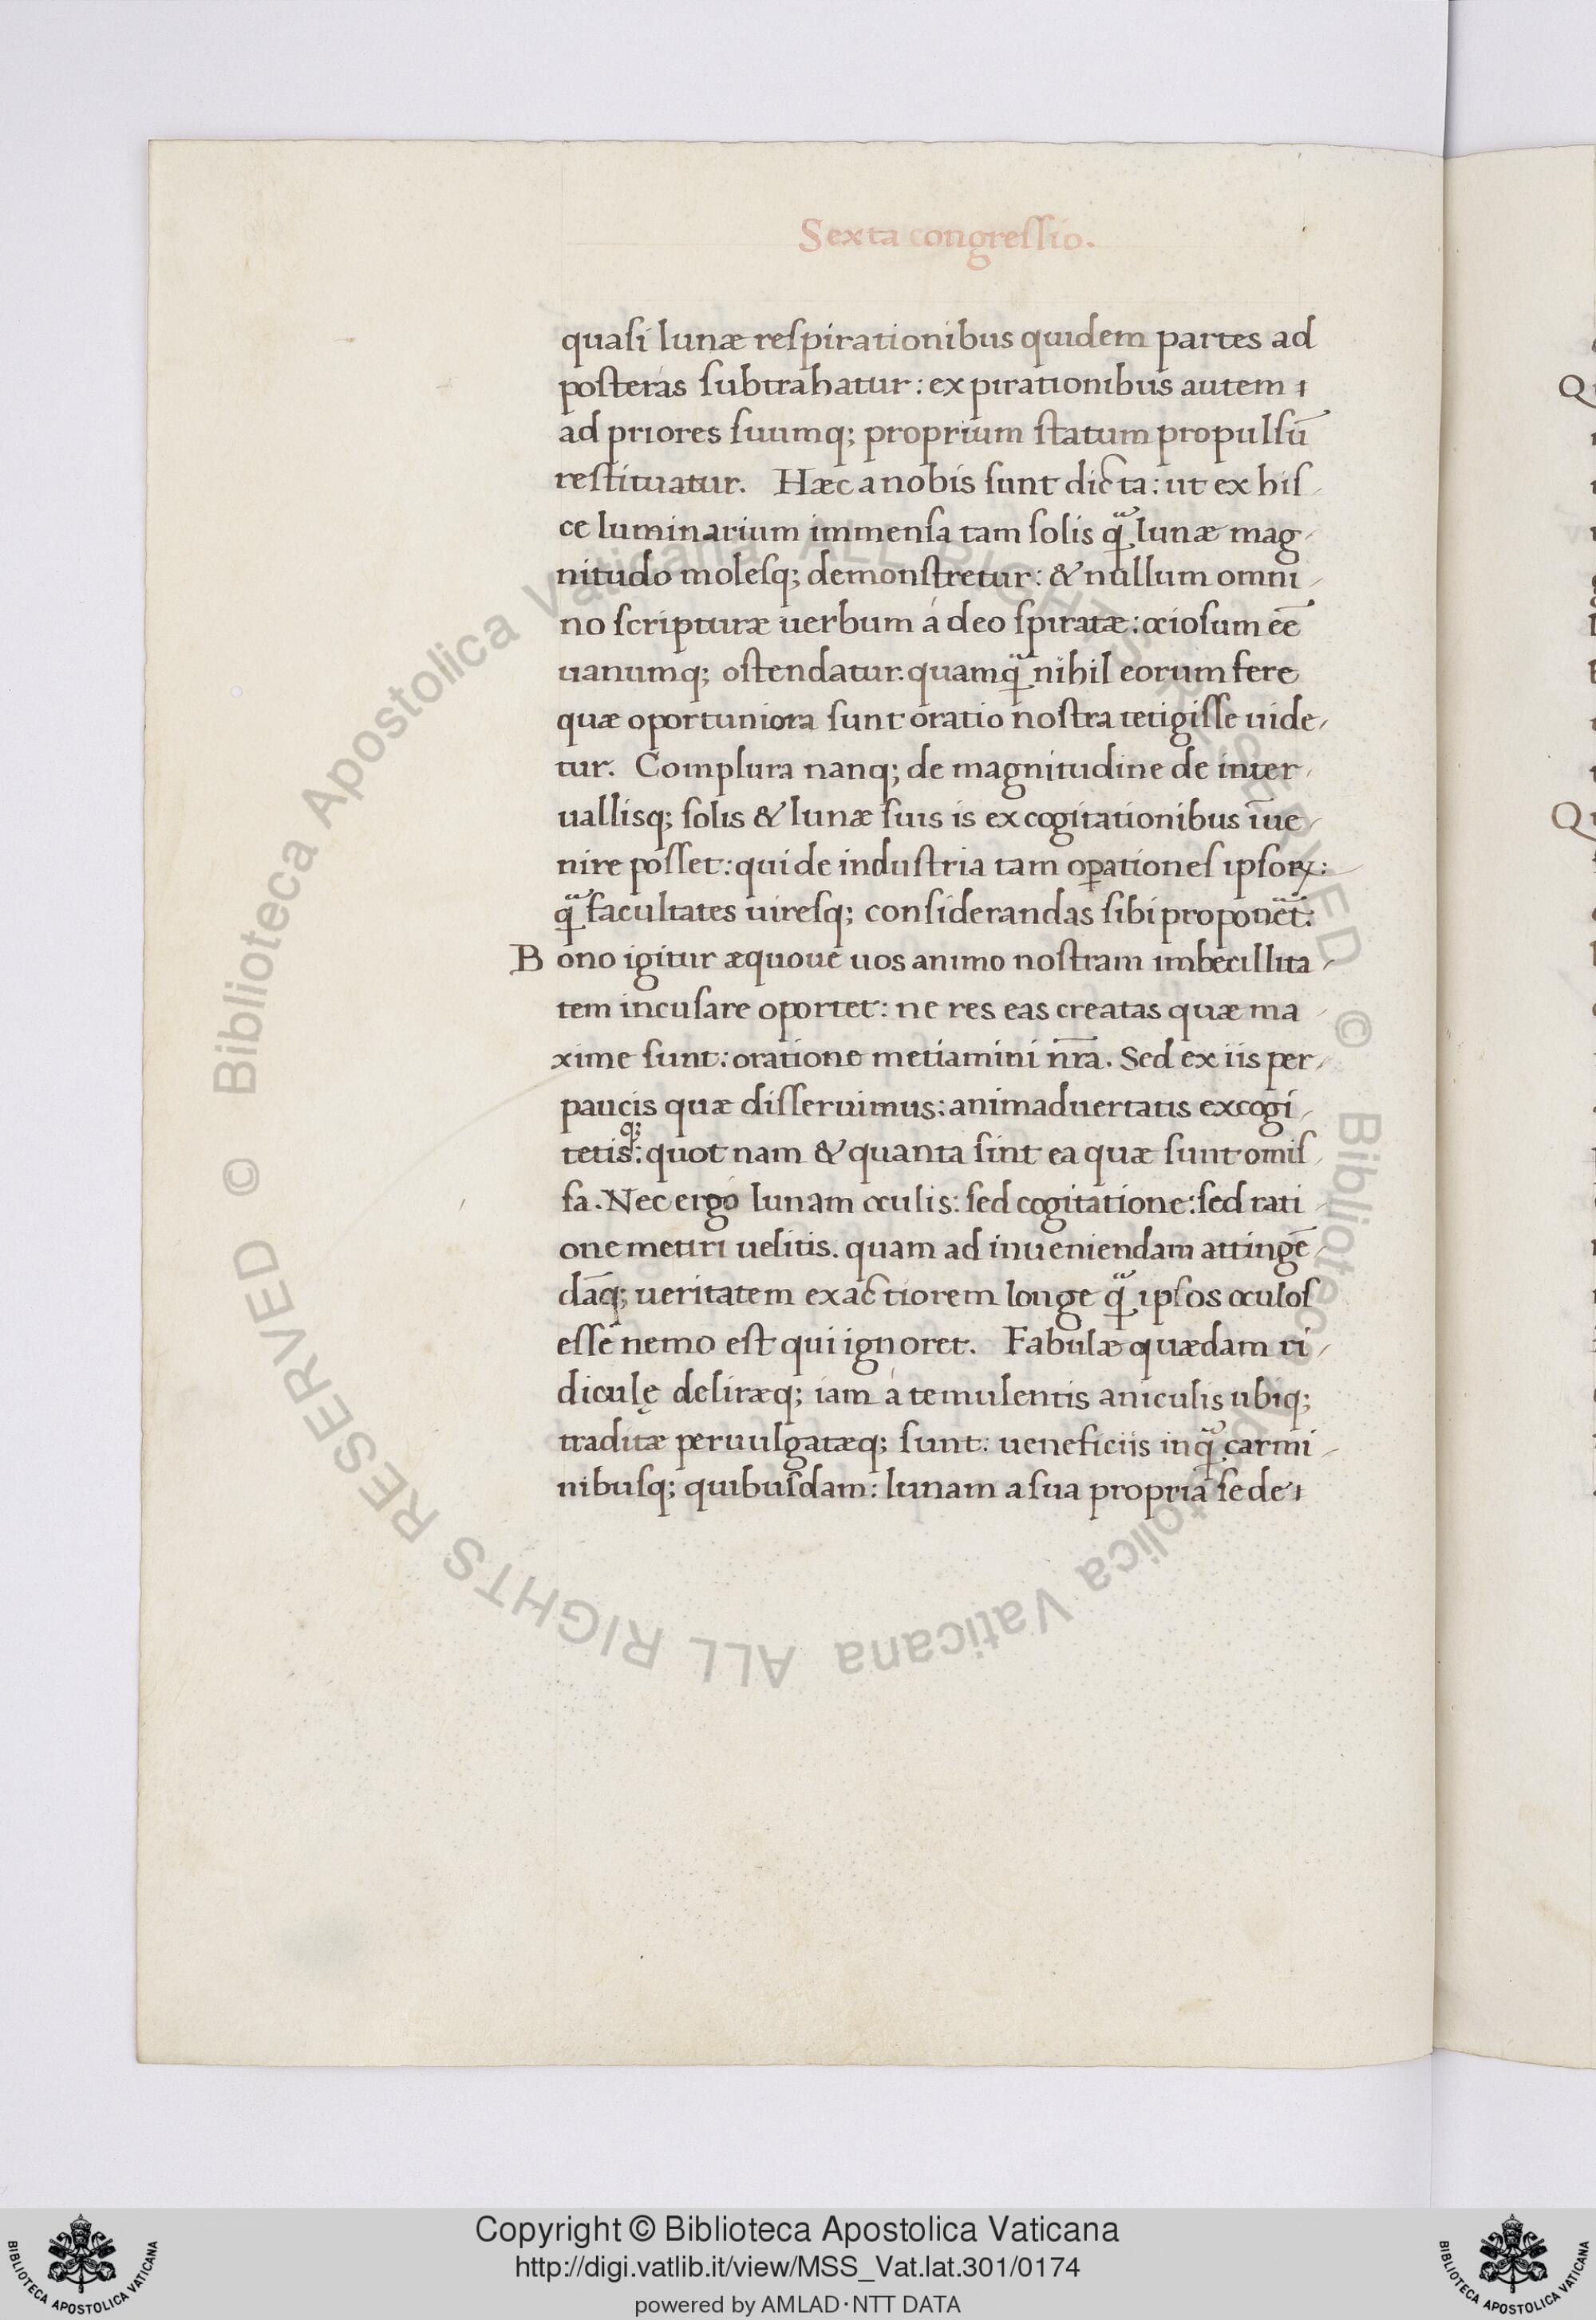 Sexta congreſſio.
quaſi lunæ reſpirationibus quidem partes ad
poſteras ſubtrahatur: expirationibus autem
ad priores ſuumq; proprium ſtatum propulſū
reſtituatur. Hæc a nobis ſunt dicta: ut ex hiſ
ce luminarium immenſa tam ſolis q̃ lunæ mag
nitudo moleſq; demonſtretur: & nullum omni
no ſcripturæ uerbum á deo ſpiratæ: ocioſum eē
uanumq; oſtendatur. quamq̃ nihil eorum fere
quæ oportuniora ſunt oratio noſtra tetigiſſe uide
tur. Complura nanq; de magnitudine de inter
uallisq; ſolis & lunæ ſuis is excogitationibus īue
nire poſſet: qui de induſtria tam oꝑationeſ ipſoꝝ:
q̃ facultates uireſq; conſiderandas ſibi proponēt:
Bono igitur æquoue uos animo noſtram imbecillita
tem incuſare oportet: ne res eas creatas quæ ma
xime ſunt: oratione metiamini nr̄a. Sed ex iis per
paucis quæ diſſeruimus: animaduertatis excogi
tetisq;: quot nam & quanta ſint ea quæ ſunt omiſ
ſa. Nec ergo lunam oculis: ſed cogitatione: ſed rati
one metiri uelitis. quam ad inueniendam attingē
dāq; ueritatem exactiorem longe q̃ ipſos oculoſ
eſſe nemo eſt qui ignoret. Fabulæ quædam ri
diculę deliræq; iam á temulentis aniculis ubiq;
traditæ peruulgatæq; ſunt: ueneficiis inq̃ carmi
nibuſq; quibuſdam: lunam a ſua propria ſede
© Biblioteca Apostolica Vaticana ALL RIGHTS RESERVED © Biblioteca Apostolica Vaticana ALL RIGHTS RESERVED
Copyright © Biblioteca Apostolica Vaticana
http://digi.vatlib.it/view/MSS_Vat.lat.301/0174
powered by AMLAD·NTT DATA
BIBLIOTECA APOSTOLICA VATICANA
BIBLIOTECA APOSTOLICA VATICANA